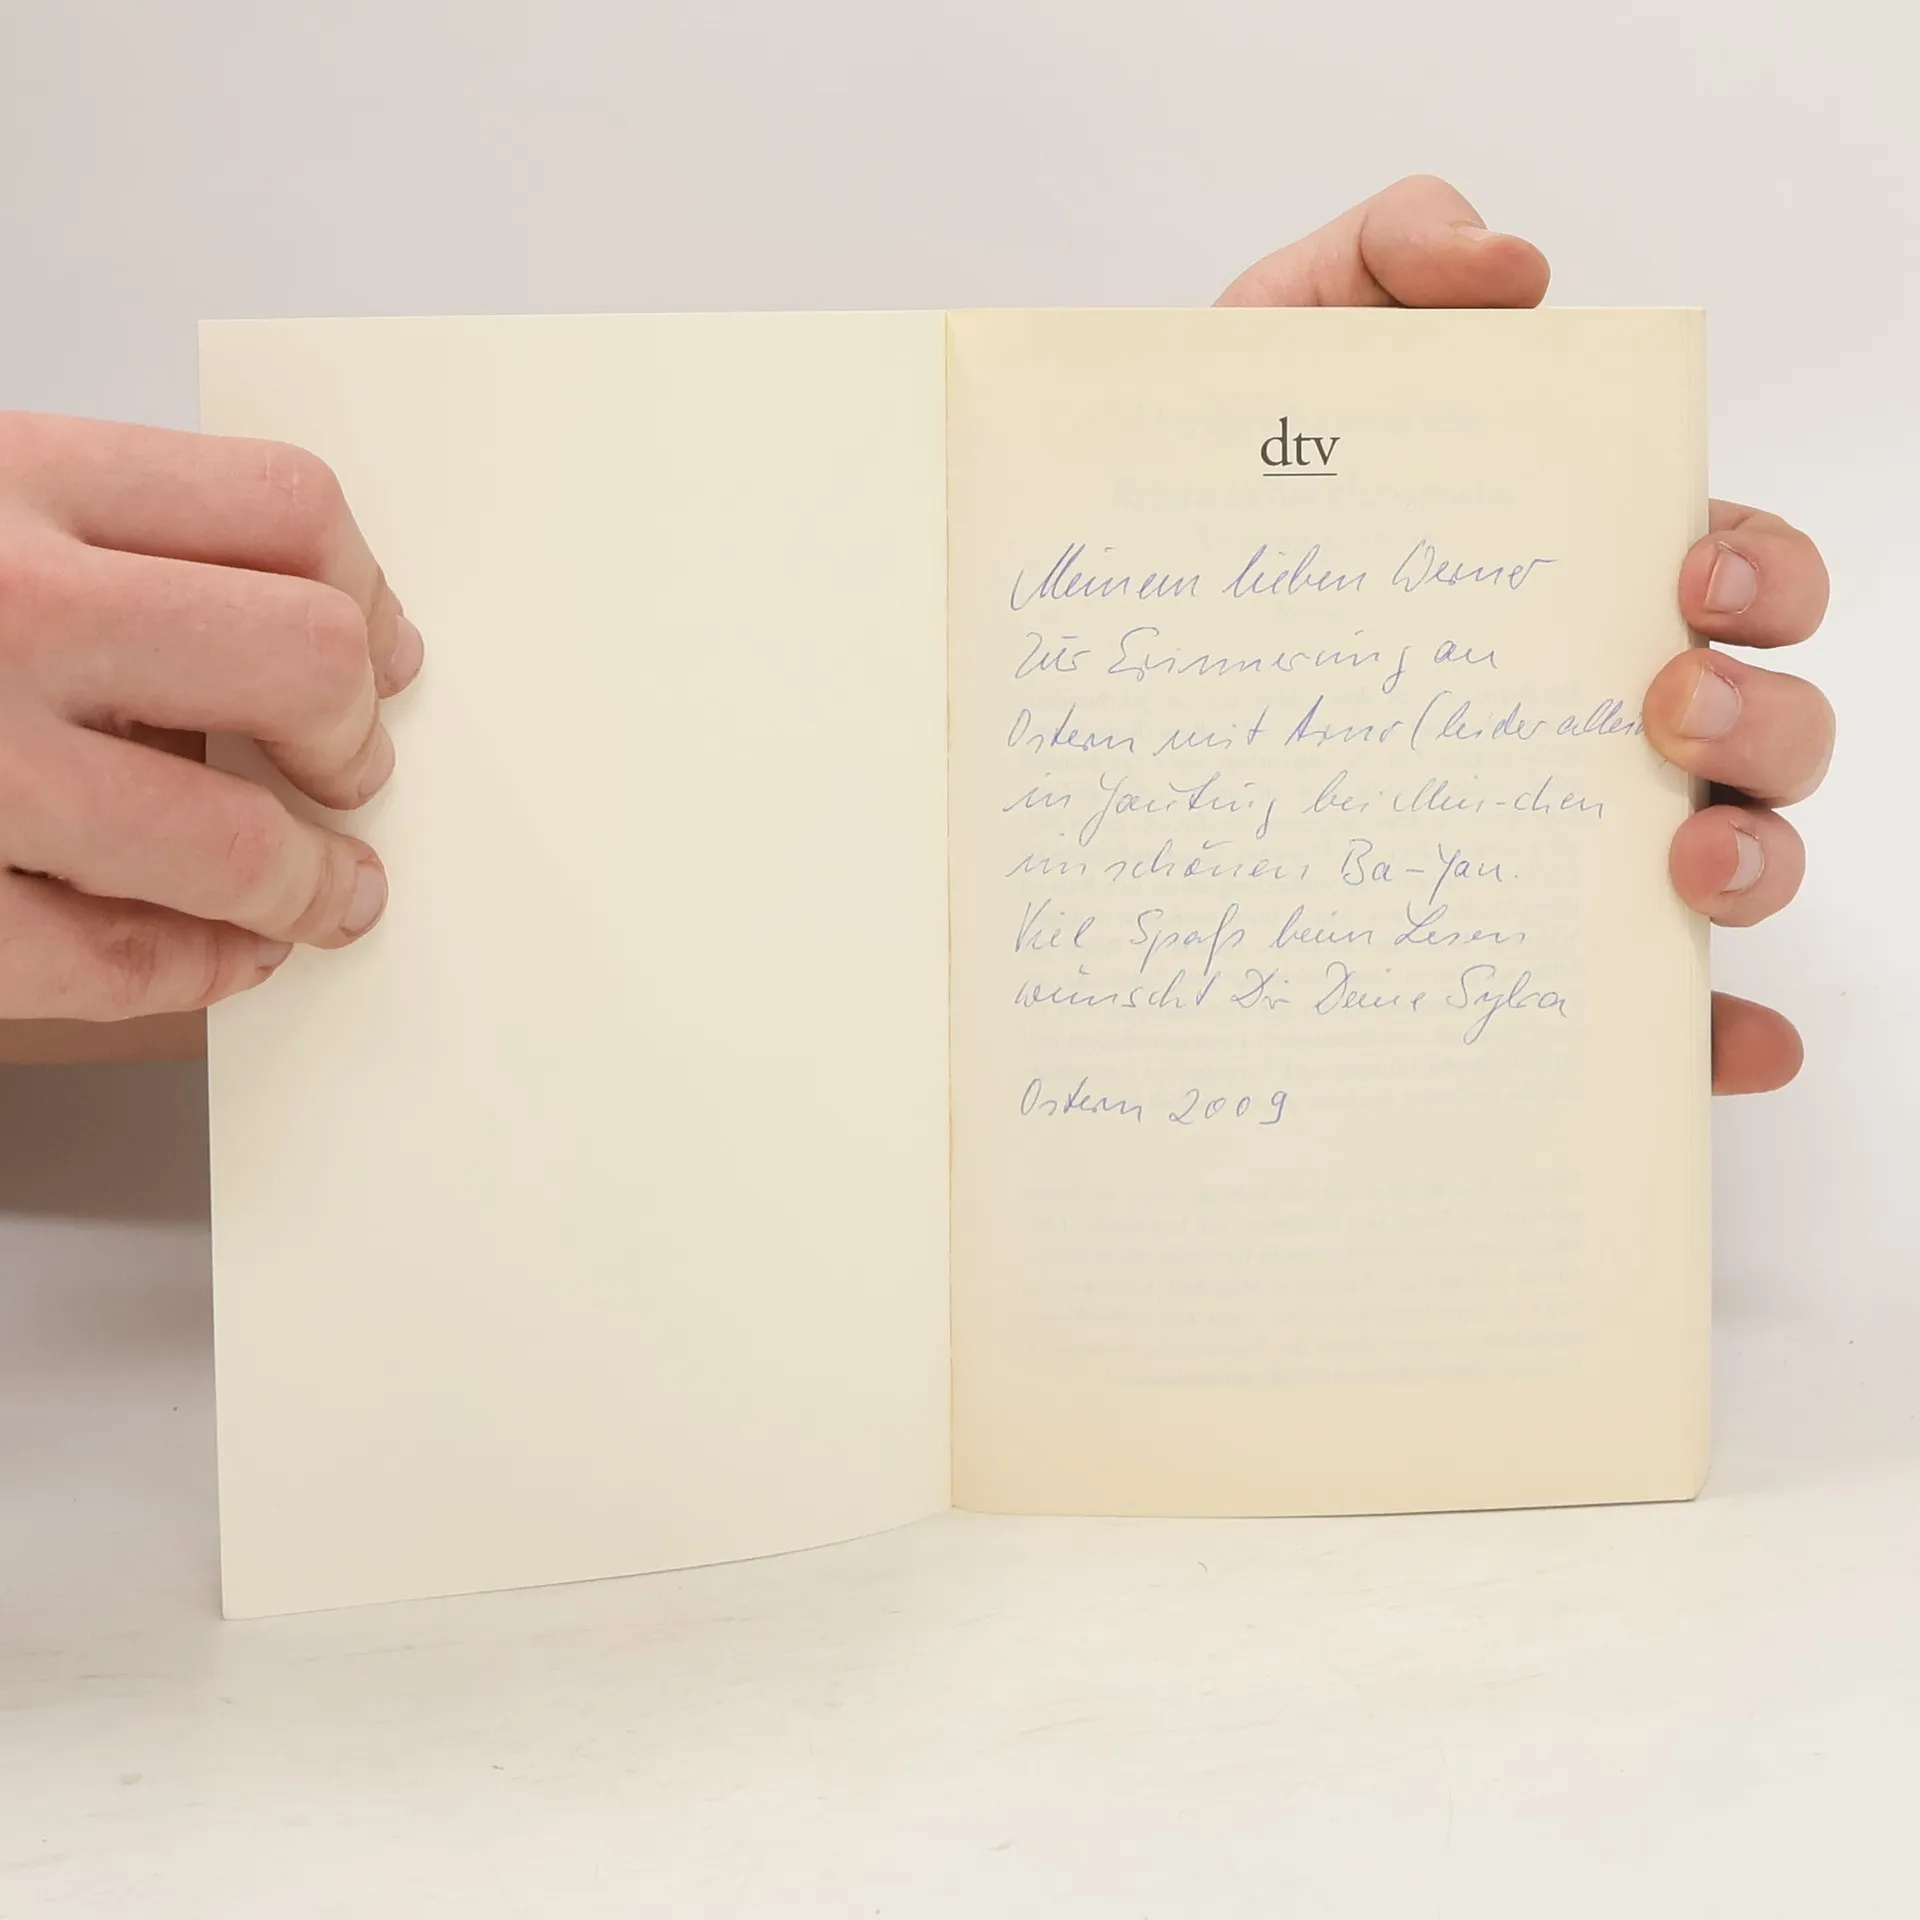 dtv
Meinem lieben Werner
zur Erinnerung an
Ostern mit Arno (leider allein
in Gauting bei Mün-chen
im schönen Ba-Yan.
Viel Spaß beim Lesen
wünscht Dir Deine Sylva
Ostern 2009